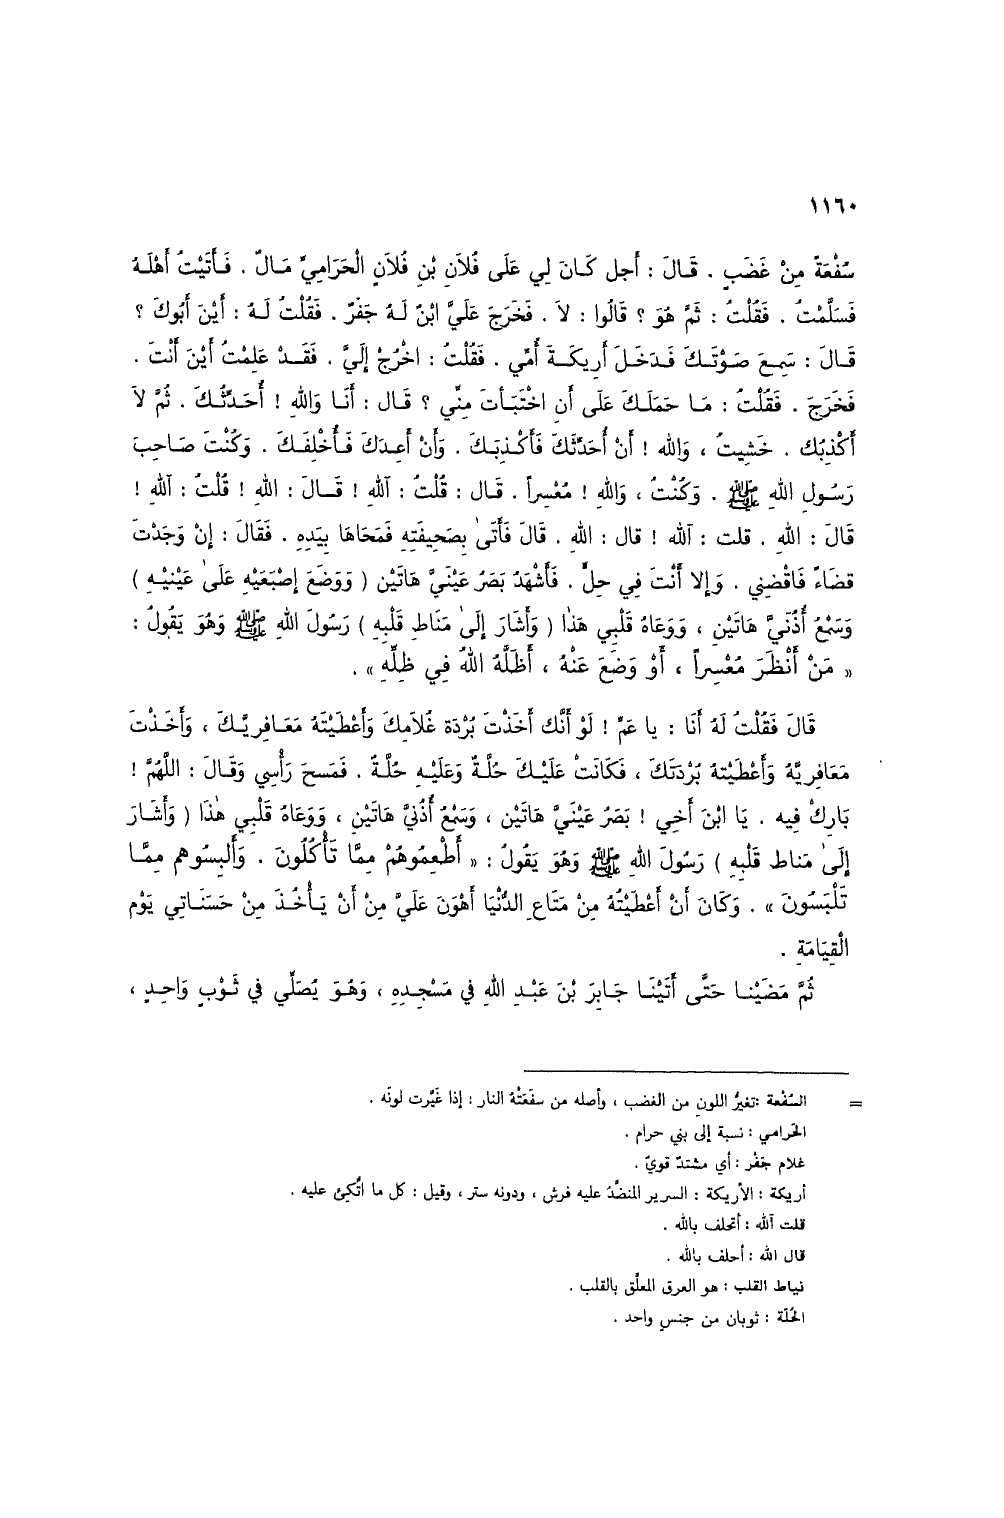 ١١٦٠
سُفْعَةً مِنْ غَضَبٍ . قَالَ : أَجل كَانَ لِي عَلَى فُلَانِ بْنِ فُلَانٍ الْحَرَامِيِّ مَالٌ . فَأَتَيْتُ أَهْلَهُ
فَسَلَّمْتُ . فَقُلْتُ : ثَمَّ هُوَ ؟ قَالُوا : لَا . فَخَرَجَ عَلَيَّ ابْنٌ لَهُ جَفْرٌ . فَقُلْتُ لَهُ : أَيْنَ أَبُوكَ ؟
قَالَ : سَمِعَ صَوْتَكَ فَدَخَلَ أَرِيكَةَ أُمِّي . فَقُلْتُ : اخْرُجْ إِلَيَّ . فَقَدْ عَلِمْتُ أَيْنَ أَنْتَ .
فَخَرَجَ . فَقُلْتُ : مَا حَمَلَكَ عَلَى أَنِ اخْتَبَأتَ مِنِّي ؟ قَال : أَنَا وَاللهِ ! أُحَدِّثُكَ . ثُمَّ لَا
أَكْذِبُك . خَشِيتُ ، وَالله ! أَنْ أُحَدِّثَكَ فَأَكْذِبَكَ . وَأَنْ أَعِدَكَ فَأُخْلِفَكَ . وَكُنْتَ صَاحِبَ
رَسُولِ اللهِ ﷺ . وَكُنْتُ ، وَاللهِ ! مُعْسِراً . قَال : قُلْتُ : آللهِ ! قَالَ : اللهِ ! قُلْتُ : آللهِ !
قَالَ : اللهِ . قلت : آللهِ ! قال : اللهِ . قَالَ فَأَتَىٰ بِصَحِيفَتِهِ فَمَحَاهَا بِيَدِهِ . فَقَالَ : إِنْ وَجَدْتَ
قضَاءً فَاقْضِنِي . وَإِلا أَنْتَ فِي حِلٍّ . فَأَشْهَدُ بَصَرُ عَيْنَيَّ هَاتَيْنِ ( وَوَضَعَ إِصْبَعَيْهِ عَلَىٰ عَيْنَيْهِ )
وَسَمْعُ أُذُنَيَّ هَاتَيْنِ ، وَوَعَاهُ قَلْبِي هَذَا ( وَأَشَارَ إِلَىٰ مَنَاطِ قَلْبِهِ ) رَسُولَ اللهِ ﷺ وَهُوَ يَقُولُ :
« مَنْ أَنْظَرَ مُعْسِراً ، أَوْ وَضَعَ عَنْهُ ، أَظَلَّهُ اللهُ فِي ظِلِّهِ » .
قَالَ فَقُلْتُ لَهُ أَنَا : يا عَمِّ ! لَوْ أَنَّك أَخَذْتَ بُرْدَةَ غُلَامِكَ وَأَعْطَيْتَهُ مَعَافِرِيَّكَ ، وَأَخَذْتَ
مَعَافِرِيَّهُ وَأَعْطَيْتهُ بُرْدَتَكَ ، فَكَانَتْ عَلَيْكَ حُلَّةٌ وَعَلَيْهِ حُلَّةٌ . فَمَسحَ رَأْسِي وَقَالَ : اللَّهُمَّ !
بَارِكْ فِيه . يَا ابْنَ أَخِي ! بَصَرُ عَيْنَيَّ هَاتَيْنِ ، وَسَمْعُ أُذُنَيَّ هَاتَيْنِ ، وَوَعَاهُ قَلْبِي هٰذَا ( وَأَشَارَ
إِلَىٰ مَناط قَلْبِهِ ) رَسُولَ اللهِ ﷺ وَهُوَ يَقُولُ : « أَطْعِمُوهُمْ مِمَّا تَأْكُلُونَ . وَأَلبِسُوهم مِمَّا
تَلْبَسُونَ » . وَكَانَ أَنْ أَعْطَيْتُهُ مِنْ مَتَاعِ الدُّنْيَا أَهْوَنَ عَلَيَّ مِنْ أَنْ يَأْخُذَ مِنْ حَسَنَاتِي يَوْمَ
الْقِيَامَةِ .
ثُمَّ مَضَيْنا حَتَّى أَتَيْنَا جَابِرَ بْنَ عَبْدِ اللهِ فِي مَسْجِدِهِ ، وَهُوَ يُصَلِّي فِي ثَوْبٍ وَاحِدٍ ،
= السُّفْعة : تغيرُّ اللون من الغضب ، وأصله من سفَعَتْهُ النار : إذا غَيَّرت لونَه .
الحَرامي : نسبة إلى بني حرام .
غلام جَفْر : أي مشتدّ قويّ .
أريكة : الأريكة : السرير المنضَّدُ عليه فرش ، ودونه ستر ، وقيل : كل ما اتُّكِئ عليه .
قلت آلله : أتحلف بالله .
قال الله : أحلف بالله .
نياط القلب : هو العرق المعلَّق بالقلب .
الحُلّة : ثوبان من جنسٍ واحد .